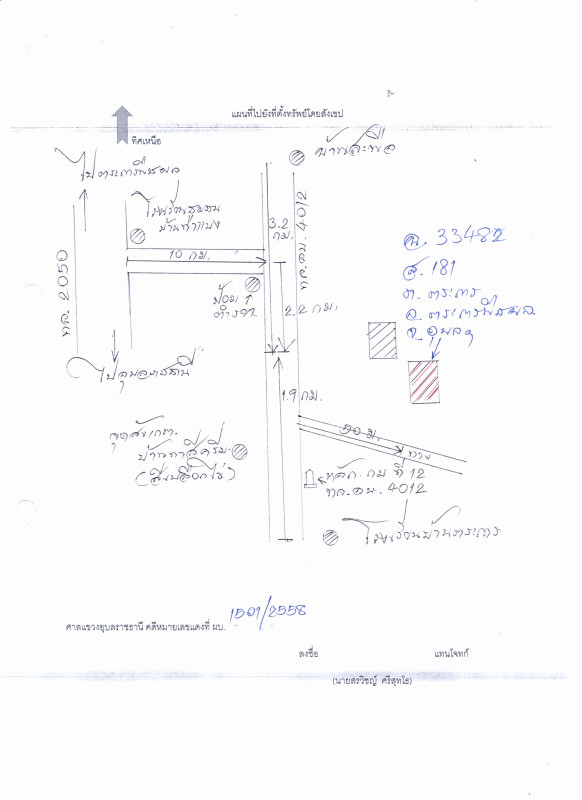 แผนที่ไปยังที่ตั้งทรัพย์โดยสังเขป
ทิศเหนือ
ไปตระการพืชผล
ทล. 2050
10 กม.
ป้อม
ตำรวจ
3.2
กม.
ทล.อบ. 4012
2.2 กม.
ฉ. 33482
ส. 181
ต. ตระการ
อ. ตระการพืชผล
จ. อุบลฯ
ไปอุบลราชธานี
1.9 กม.
จุดสังเกต
50 ม.
หลัก กม ที่ 12
ทล.อบ. 4012
โรงเรียนบ้านตระการ
ศาลแขวงอุบลราชธานี คดีหมายเลขแดงที่ ผบ. 1501/2558
ลงชื่อ แทนโจทก์
(นายสรวิชญ์ ศรีสุทโธ)